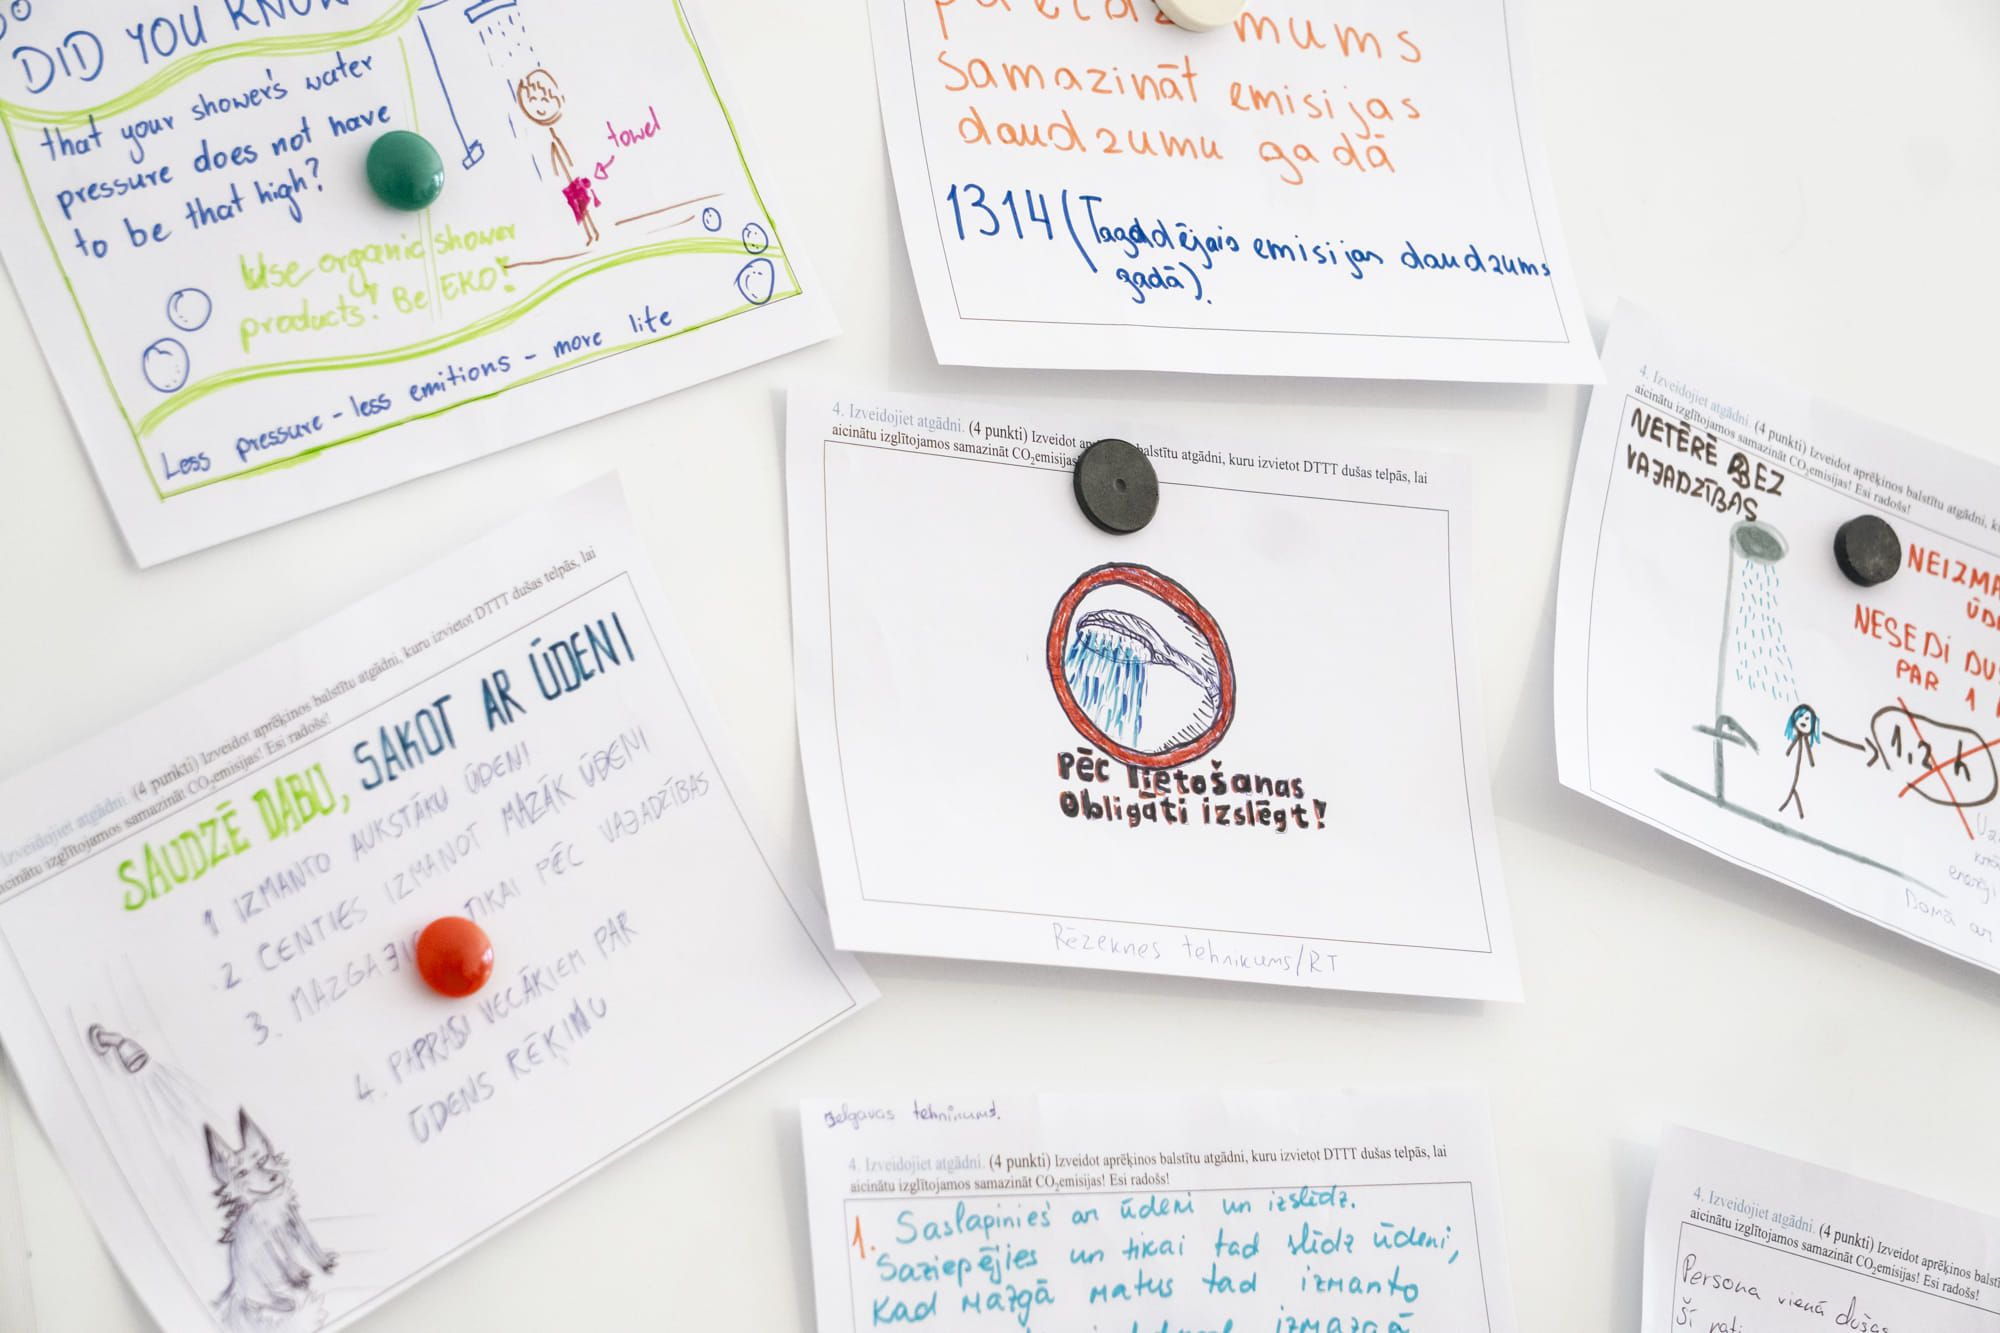 DID YOU KNOW
that your shower's water
pressure does not have
to be that high?
towel
Use organic shower
products! Be EKO!
Less pressure - less emitions - more life
mums
samazināt emisijas
daudzumu gadā
1314 (Tagaddējais emisijas daudzums
gadā).
4. Izveidojiet atgādni. (4 punkti) Izveidot aprēķinos balstītu atgādni, kuru izvietot DTTT dušas telpās, lai
aicinātu izglītojamos samazināt CO₂emisijas! Esi radošs!
SAUDZĒ DABU, SAKOT AR ŪDENI
1 IZMANTO AUKSTĀKU ŪDENI
2 CENTIES IZMANOT MAZĀK ŪDENI
3. TIKAI PĒC VAJADZĪBAS
4. PAPRASI VECĀKIEM PAR
ŪDENS RĒĶINU
4. Izveidojiet atgādni. (4 punkti) Izveidot balstītu atgādni, kuru izvietot DTTT dušas telpās, lai
aicinātu izglītojamos samazināt CO₂emisijas
Pēc lietošanas
Obligāti izslēgt!
Rēzeknes tehnikums/RT
4. Izveidojiet atgādni. (4 punkti) Izveidot aprēķinos balstītu atgādni,
aicinātu izglītojamos samazināt CO₂emisijas! Esi radošs!
NETĒRĒ BEZ
VAJADZĪBAS
NEIZMA
ŪD
NESĒDI DU
PAR 1
1,2 h
Domā ar
Jelgavas tehnikums.
4. Izveidojiet atgādni. (4 punkti) Izveidot aprēķinos balstītu atgādni, kuru izvietot DTTT dušas telpās, lai
aicinātu izglītojamos samazināt CO₂emisijas! Esi radošs!
1. Saslapinies ar ūdeni un izslēdz.
Saziepējies un tikai tad slēdz ūdeni,
Kad mazgā matus tad izmanto
izmazgā
4. Izveidojiet atgādni. (4 punkti) Izveidot aprēķinos balstītu
aicinātu izglītojamos samazināt CO₂emisijas! Esi radošs!
Persona vienā dušas
Šī